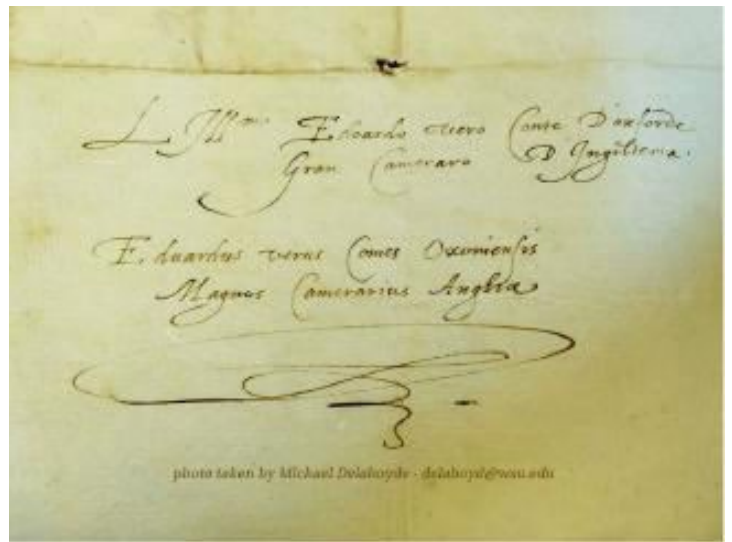 L Ill^mo Eduardo Vero Conte D'oxforde
Gran Cameraro D'Ingilterra.
Eduardus verus Comes Oxoniensis
Magnus Camerarius Angliæ
photo taken by Michael Delahoyde - delahoyd@wsu.edu